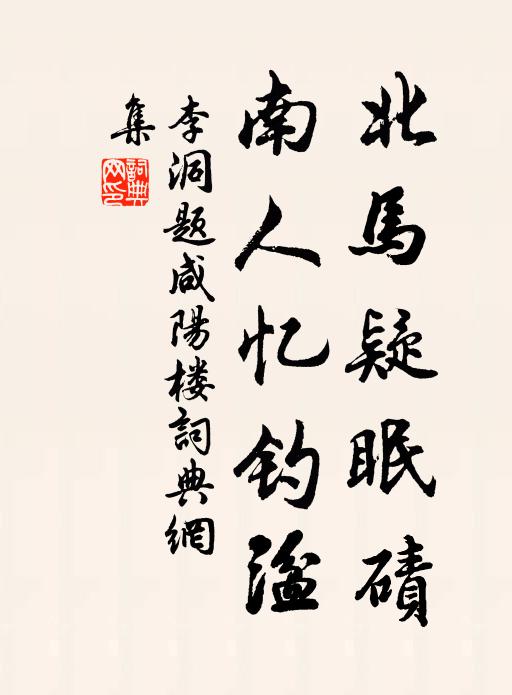 北馬疑眠磧
南人忆钓溢
李洞题咸陽楼詞典網
集
詞典网印